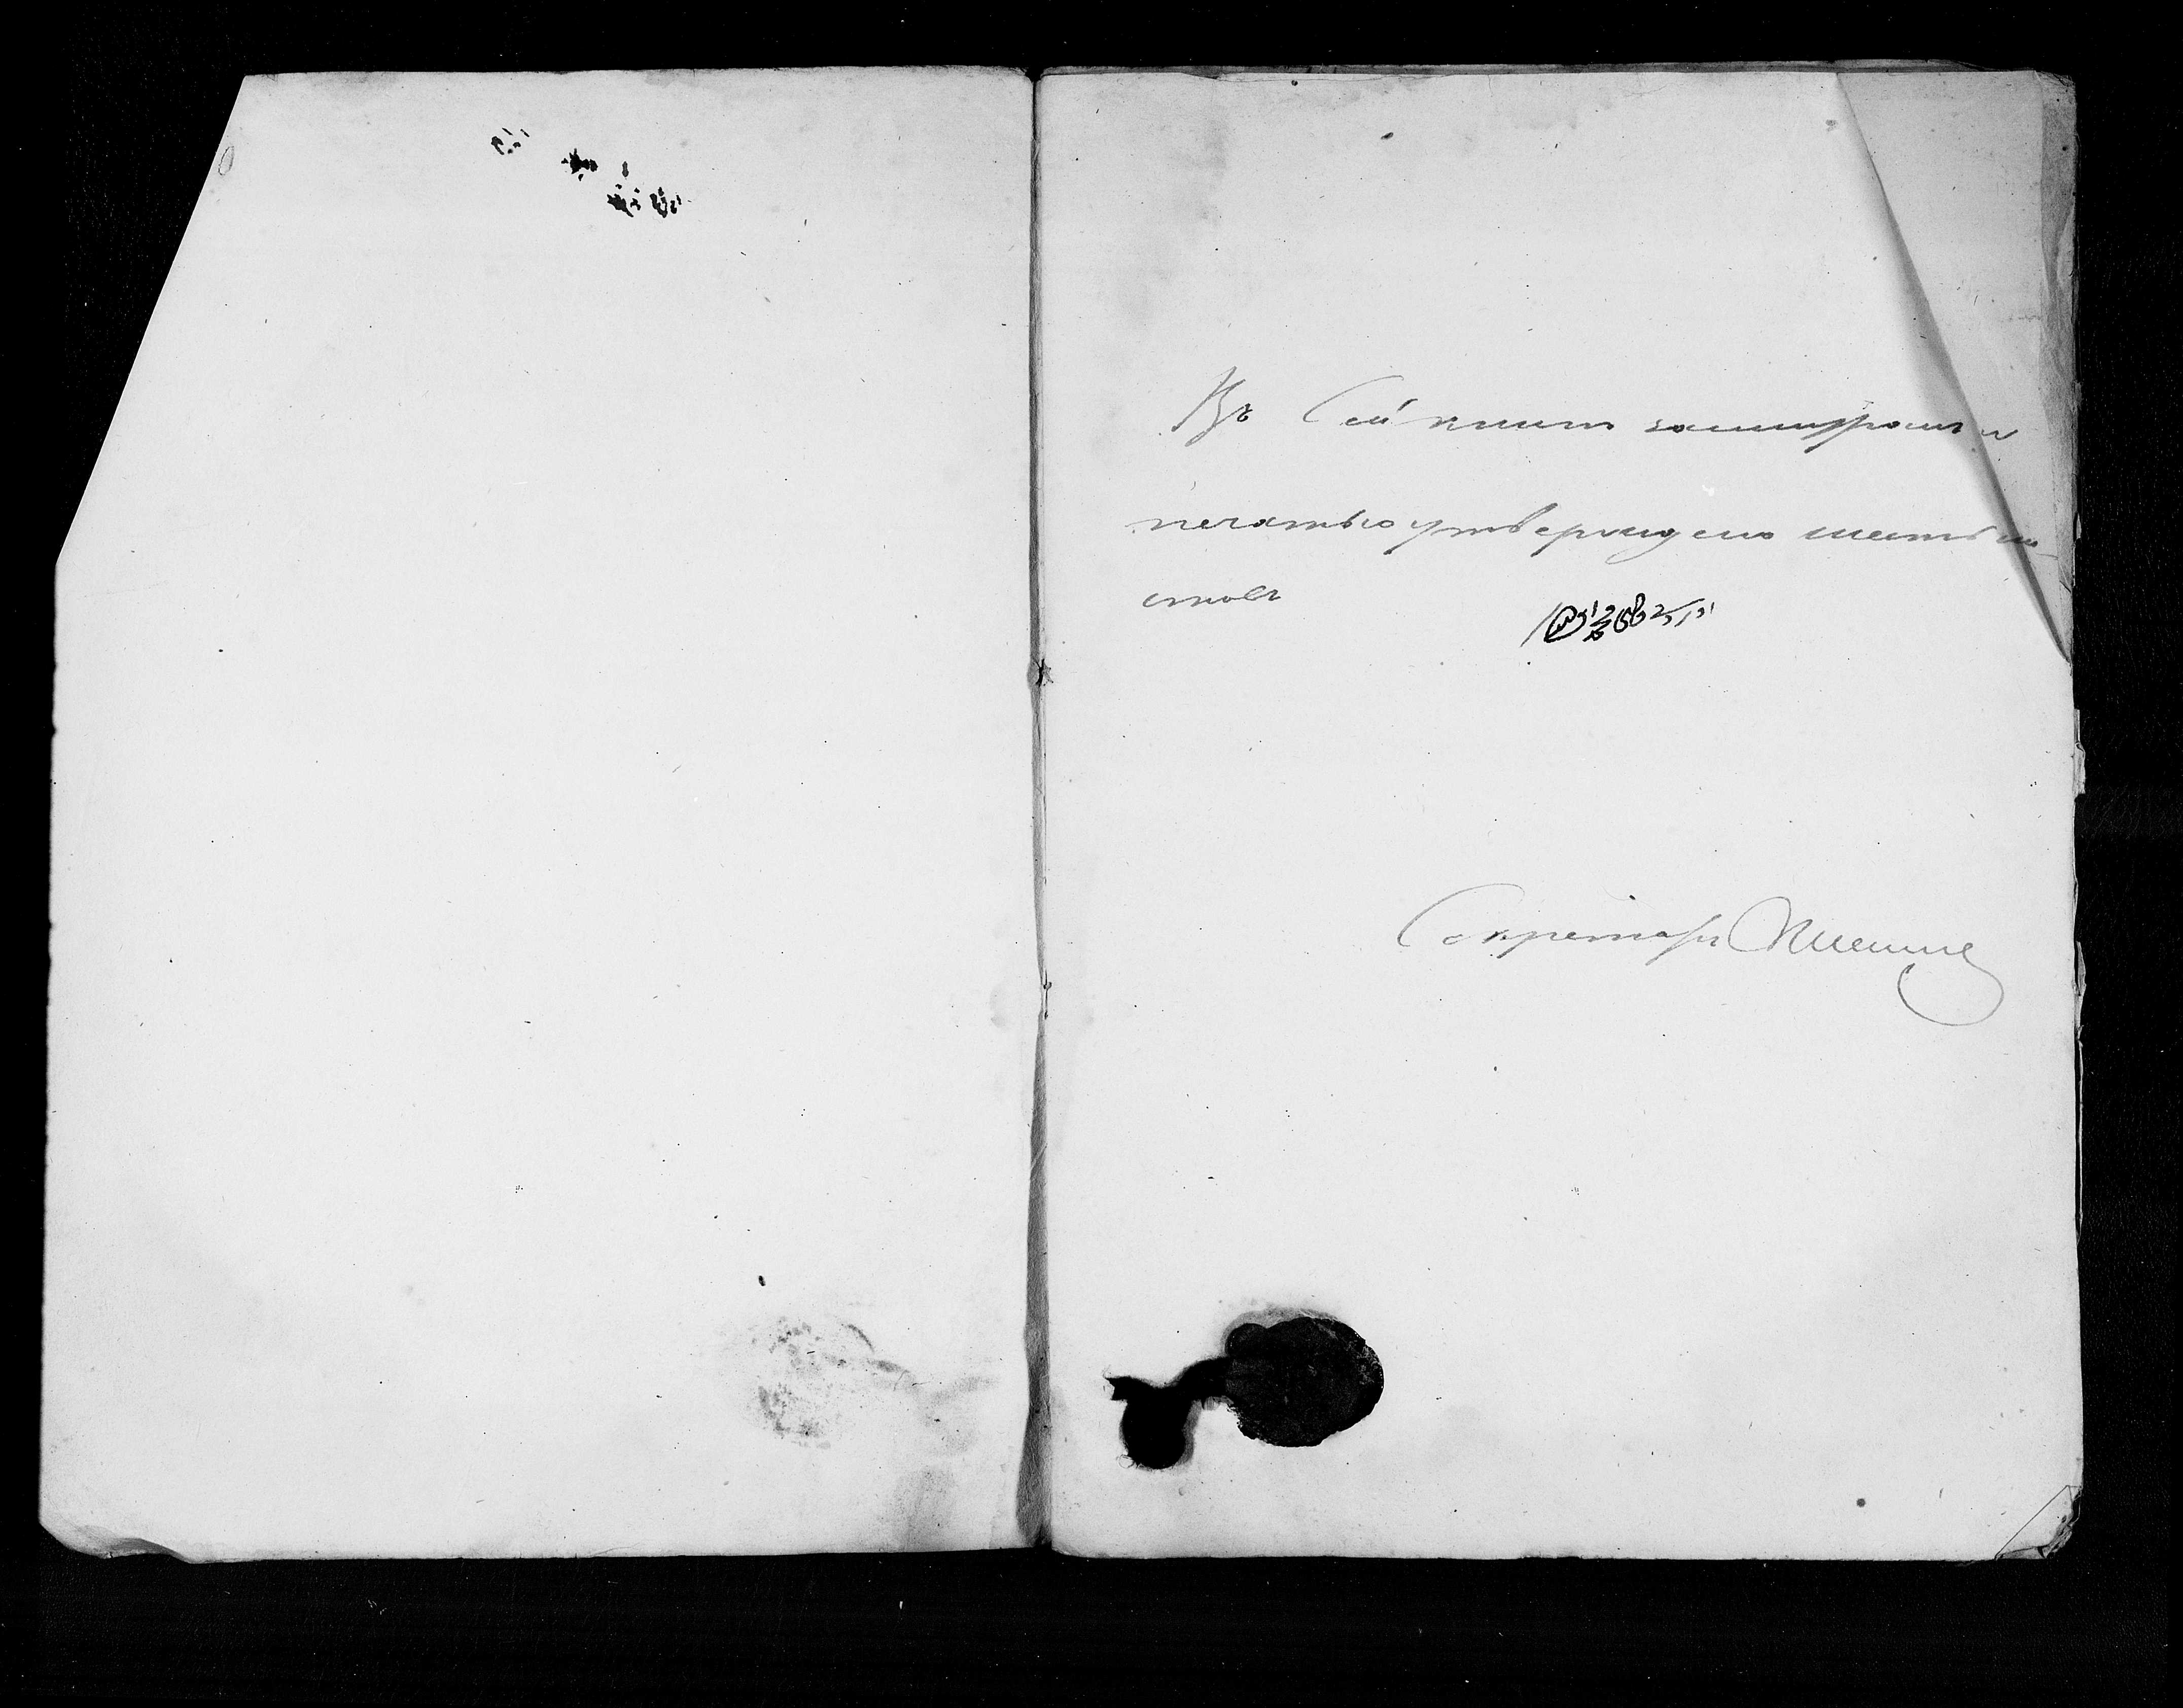 Въ Сей книгѣ зашнурошь и
печатью утверждено шесть ли-
стовъ
Секретарь